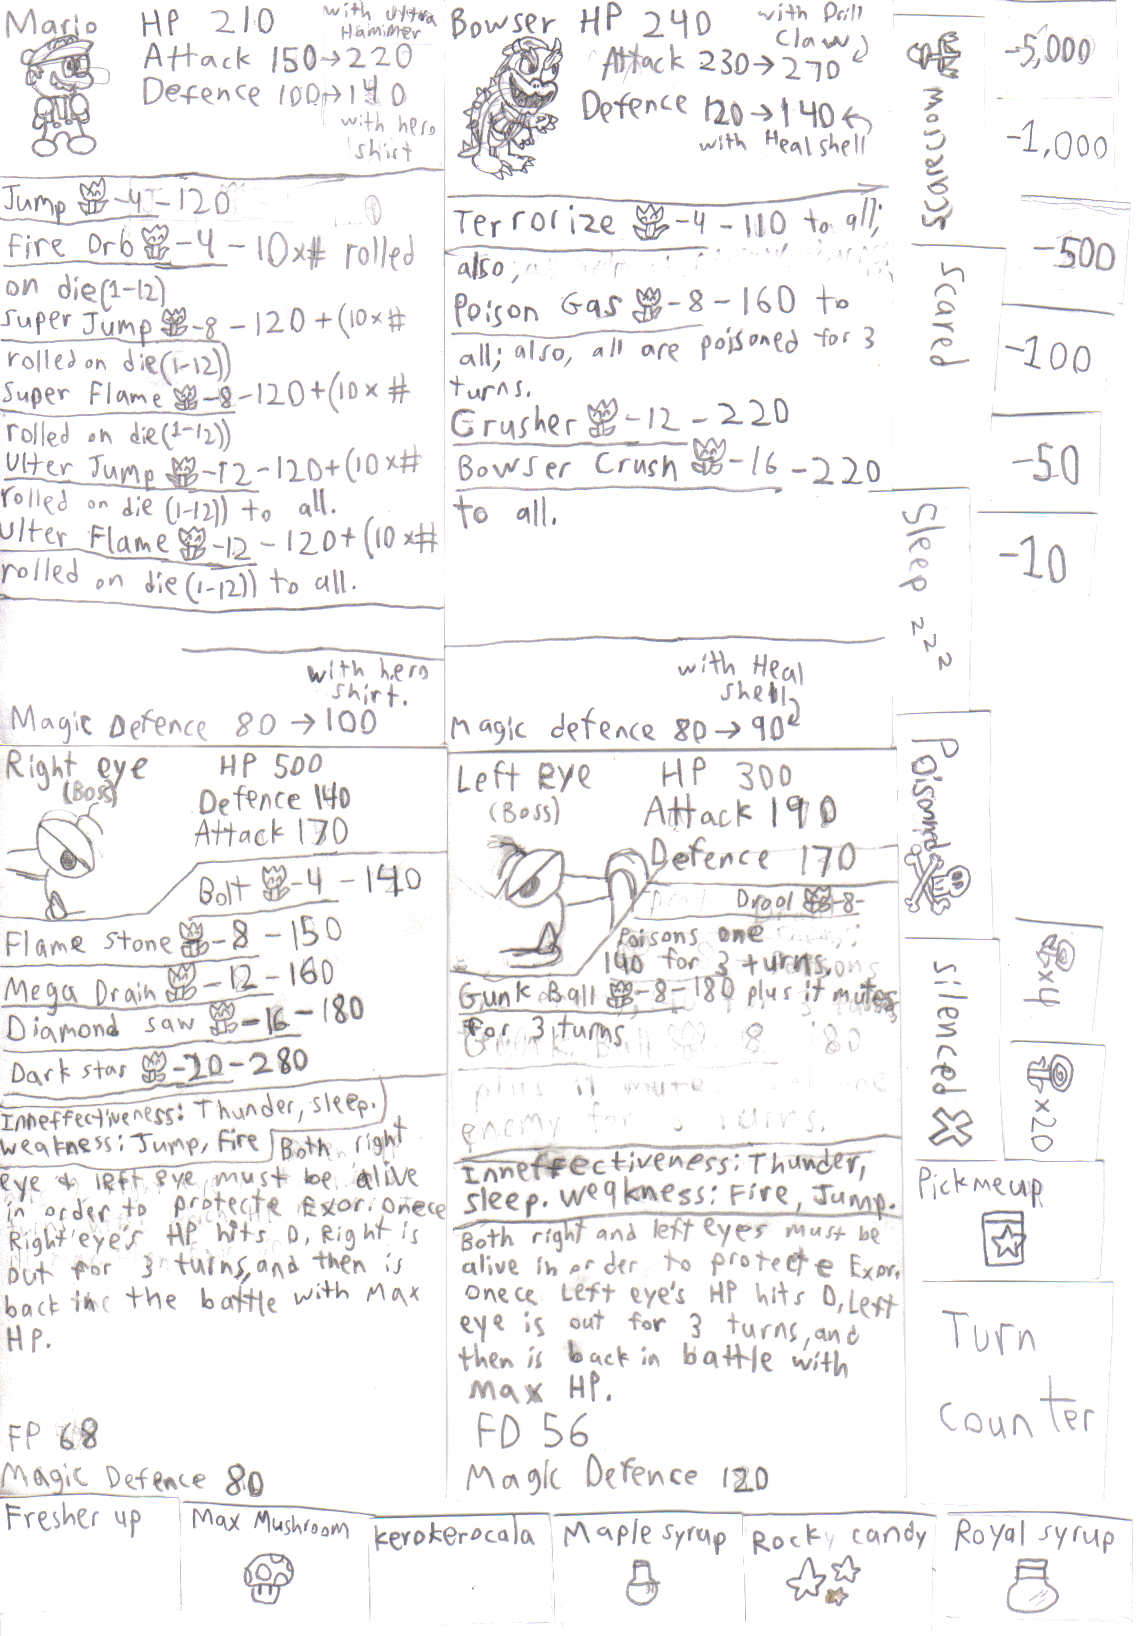 Mario HP 210
with Ultra
Hammer
Attack 150→220
Defence 100→140
with hero
shirt
Jump -4-120
Fire Orb -4-10x# rolled
on die(1-12)
Super Jump -8-120+(10x#
rolled on die(1-12))
Super Flame -8-120+(10x#
rolled on die(1-12))
Ulter Jump -12-120+(10x#
rolled on die (1-12)) to all.
Ulter Flame -12-120+(10x#
rolled on die (1-12)) to all.
with hero
shirt.
Magic Defence 80→100
Bowser HP 240
with Drill
Claw
Attack 230→270
Defence 120→140
with Heal shell
Terrorize -4-110 to all;
also,
Poison Gas -8-160 to
all; also, all are poisoned for 3
turns.
Crusher -12-220
Bowser Crush -16-220
to all.
with Heal
shell
Magic defence 80→90
Right eye HP 500
(Boss)
Defence 140
Attack 170
Bolt -4-140
Flame stone -8-150
Mega Drain -12-160
Diamond saw -16-180
Dark star -20-280
Inneffectiveness: Thunder, sleep.
weakness: Jump, Fire
Both right
eye & left eye must be alive
in order to protecte Exor. Onece
Right eye's HP hits 0, Right is
out for 3 turns, and then is
back in the battle with Max
HP.
FP 68
Magic Defence 80
Left Eye HP 300
(Boss)
Attack 190
Defence 170
Drool -8-
Poisons one
140 for 3 turns.
Gunk Ball -8-180 plus it mutes
for 3 turns
plus it mute
enemy for 3 turns.
Inneffectiveness: Thunder,
sleep. weakness: Fire, Jump.
Both right and left eyes must be
alive in order to protecte Exor.
onece Left eye's HP hits 0, Left
eye is out for 3 turns, and
then is back in battle with
Max HP.
FD 56
Magic Defence 120
Scarecrow
Scared
Sleep zzz
Poisoned
Silenced
-5,000
-1,000
-500
-100
-50
-10
x4
x20
Pick me up
Turn
counter
Fresher up
Max Mushroom
kerokerocala
Maple syrup
Rocky candy
Royal syrup